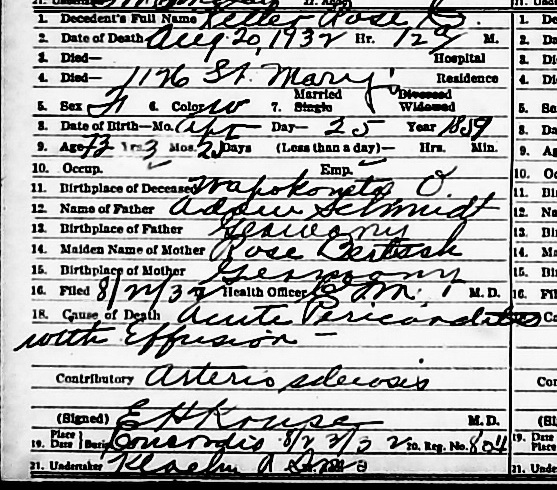 1. Decedent's Full Name Keller Rose
2. Date of Death Aug 20, 1932 Hr. 12 M.
3. Died— Hospital
4. Died— 1126 St. Mary's Residence
5. Sex F 6. Color W 7. Married Single Divorced Widowed
8. Date of Birth—Mo. Apr Day— 25 Year 1859
9. Age 73 Yrs. 3 Mos. 25 Days (Less than a day)— Hrs. Min.
10. Occup. Emp.
11. Birthplace of Deceased Wapokoneta O.
12. Name of Father Schmidt
13. Birthplace of Father Germany
14. Maiden Name of Mother Rose
15. Birthplace of Mother Germany
16. Filed 8/22/32 Health Officer M. D.
18. Cause of Death Acute Pericarditis
with Effusion —
Contributory Arterio sclerosis
(Signed) M. D.
19. Place Date Burial Concordia 8/23/32 20. Reg. No. 804
21. Undertaker Klaehn